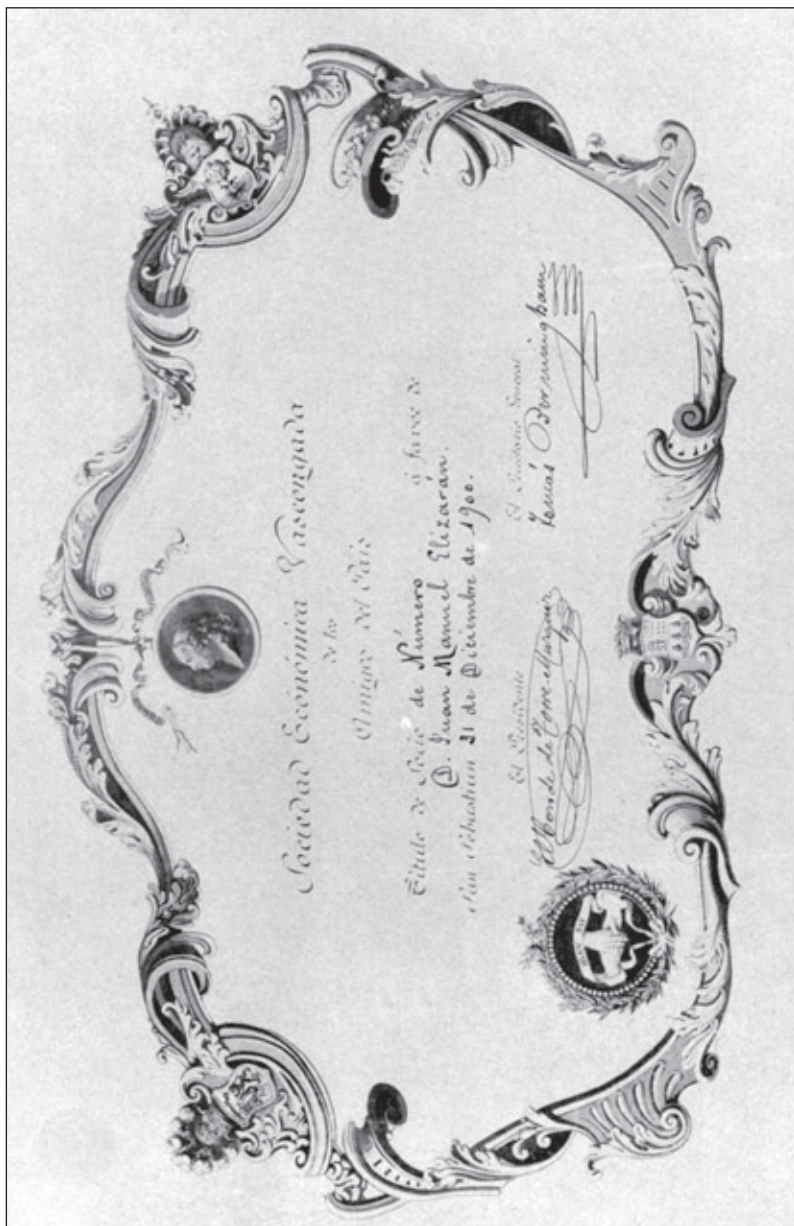 Sociedad Económica Vascongada
de los
Amigos del País
Título de Socio de Número á favor de
D. Juan Manuel Elizarán.
San Sebastian 21 de Diciembre de 1900.
El Presidente
El Conde de Torre-Múzquiz
El Secretario General
Tomás Berminghan